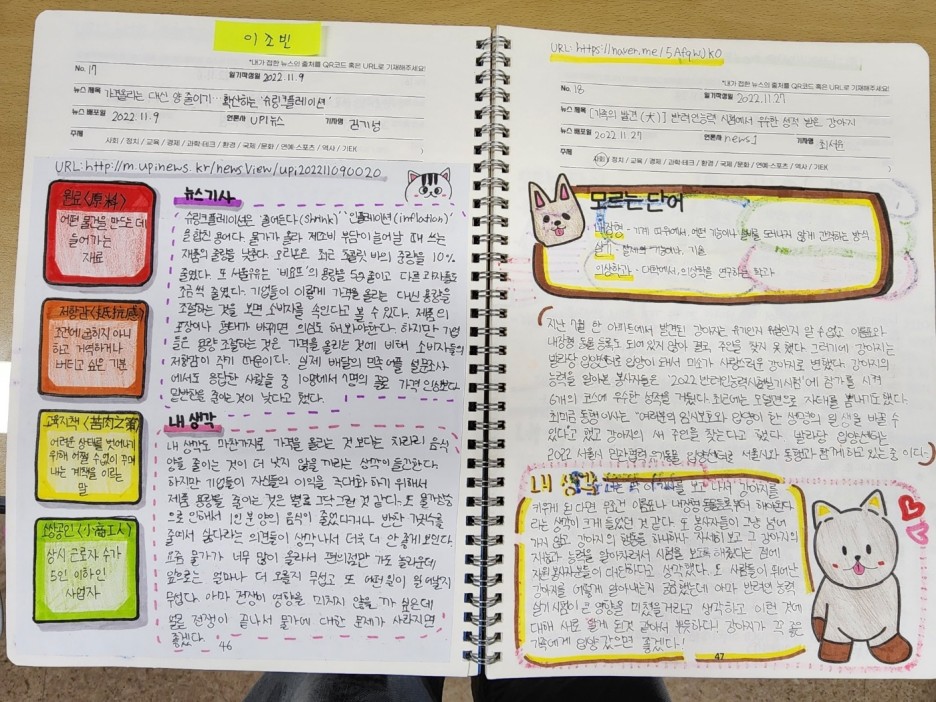 이소빈
*내가 접한 뉴스의 출처를 QR코드 혹은 URL로 기재해주세요!
No. 17
일기작성일 2022.11.9
뉴스 제목 가격올리는 대신 양 줄이기.. 확산하는 '슈링크플레이션'
뉴스 배포일 2022.11.9 언론사 UPI뉴스 기자명
주제 사회 / 정치 / 교육 / 경제 / 과학·테크 / 환경 / 국제 / 문화 / 연예·스포츠 / 역사 / 기EK
URL: http://m.upinews.kr/newsView/upi202211090020
원료<原料>
어떤 물건을 만드는 데
들어가는
재료
저항감<抵抗感>
조건에 굽히지 아니
하고 거역하거나
버티고 싶은 기분
고육지책<苦肉之策>
어려운 상태를 벗어나기
위해 어쩔 수 없이 꾸며
내는 계책을 이르는
말
소상공인<小商工人>
상시 근로자 수가
5인 이하인
사업자
뉴스기사
슈링크플레이션은 '줄어든다(shrink)' '인플레이션(inflation)'
을 합친 용어다. 물가가 올라 제조비 부담이 늘어날 때 쓰는
제품의 용량을 낮춘다. 오리온은 최근 초콜릿 바의 중량을 10%
줄였다. 또 서울우유는 '비요뜨'의 용량을 5g 줄이고 다른 과자들도
조금씩 줄였다. 기업들이 이렇게 가격을 올리는 대신 용량을
조절하는 것을 보면 소비자를 속인다고 볼 수 있다. 제품의
포장이나 형태가 바뀌면 의심도 해봐야한다. 하지만 기업
들은 용량 조절하는 것은 가격을 올리는 것에 비해 소비자들의
저항감이 작기 때문이다. 실제 배달의 민족 어플 설문조사
에서도 응답한 사람들 중 10명에서 7명의 꼴로 가격 인상보다
밑반찬을 줄이는 것이 낫다고 했다.
내 생각
내 생각도 마찬가지로 가격을 올리는 것 보다는 차라리 음식
양을 줄이는 것이 더 낫지 않을까라는 생각이 들긴한다.
하지만 기업들이 자신들의 이익을 극대화 하기 위해서
제품 용량을 줄이는 것은 별로 그닥 그런 것 같다. 또 물가상승
으로 인해서 1인 분 양의 음식이 줄었다거나 반찬 가짓수를
줄여서 싫다라는 의견들이 생각나서 더욱 더 안 좋게 보인다.
요즘 물가가 너무 많이 올라서 편의점만 가도 놀라운데
앞으로는 얼마나 더 오를지 무섭고 또 어려움이 될 여럴지
무섭다. 아마 전쟁이 영향을 미치지 않을까 싶은데
얼른 전쟁이 끝나서 물가에 대한 문제가 사라지면
좋겠다.
46
URL: https://naver.me/5AfqwJKO
*내가 접한 뉴스의 출처를 QR코드 혹은 URL로 기재해주세요!
No. 18
일기작성일 2022.11.27
뉴스 제목 [가족의 발견(犬)] 반려견능력 시험에서 우수한 성적 받은 강아지
뉴스 배포일 2022.11.27 언론사 news1 기자명
주제 사회 / 정치 / 교육 / 경제 / 과학·테크 / 환경 / 국제 / 문화 / 연예·스포츠 / 역사 / 기EK
모르는 단어
내장형 - 기계 따위에서, 어떤 기능이나 부품을 드러나지 않게 간직하는 방식
실기 - 실제의 기능이나 기술
의상학과 - 대학에서, 의상학을 연구하는 학과
지난 7월 한 아파트에서 발견된 강아지는 유기인지 유실인지 알 수 없고 이름표와
내장형 동물 등록도 되어 있지 않아 결국 주인을 찾지 못했다. 그러기에 강아지는
발라당 입양센터로 입양이 돼서 미소가 사랑스러운 강아지로 변했다. 강아지의
능력을 알아본 봉사자들은 '2022 반려견능력시험실기시험'에 참가를 시켜
6개의 코스에 우수한 능력을 거뒀다. 최근에는 모델견으로 자태를 뽐내기도 했다.
최미금 동행 이사는 "여러분의 임시보호와 입양이 한 생명의 일생을 바꿀 수
있다"고 했고 강아지의 새 가족을 찾는다고 했다. 발라당 입양센터는
2022 서울시 민관협력 유기동물 입양센터로 서울시와 동행과 함께 하고 있는 중이다-
내 생각
키우게 된다면 일단 이름표나 내장형 동물등록부터 해야한다
라는 생각이 크게 들었던 것 같다. 또 봉사자들이 그냥 넘어
가지 않고 강아지의 행동을 하나하나 자세히 보고 그 강아지의
지혜와 능력을 알아차려서 시험을 보도록 해줬다는 점에
자원봉사자분들이 대단하다고 생각했다. 또 사람들이 뛰어난
강아지를 어떻게 알아내는지 궁금했는데 아마 반려견 능력
실기시험이 큰 영향을 미쳤을거라고 생각하고 이런 것에
대해 새로 알게 된것 같아서 뿌듯하다! 강아지가 꼭 좋은
가족에게 입양갔으면 좋겠다!
47